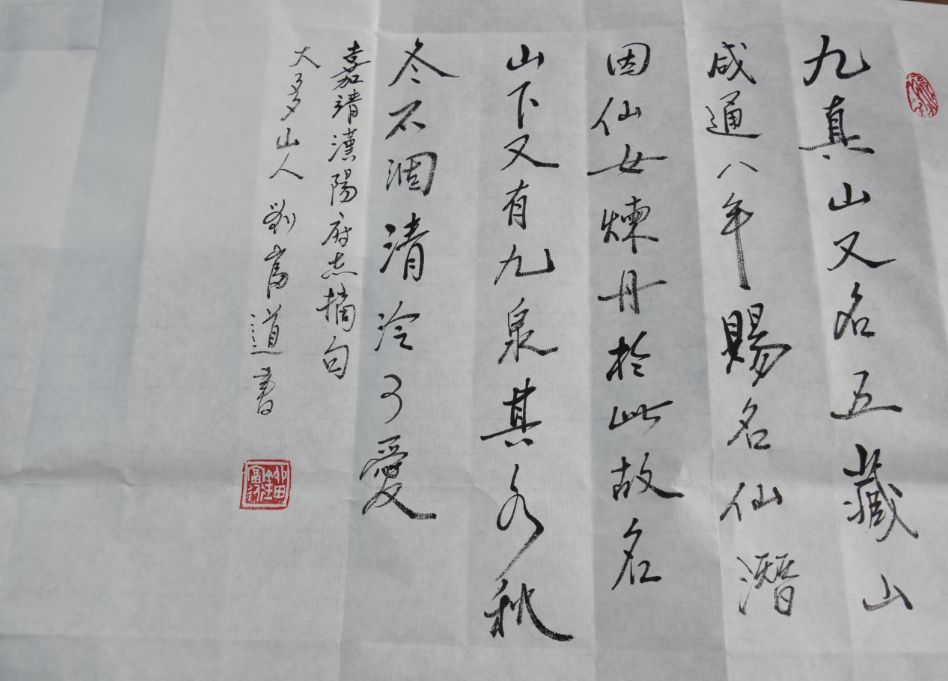 九真山又名五藏山
咸通八年賜名仙潛
因仙女煉丹於此故名
山下又有九泉其水秋
冬不涸清泠可愛
嘉靖漢陽府志摘句
大多山人劉富道書